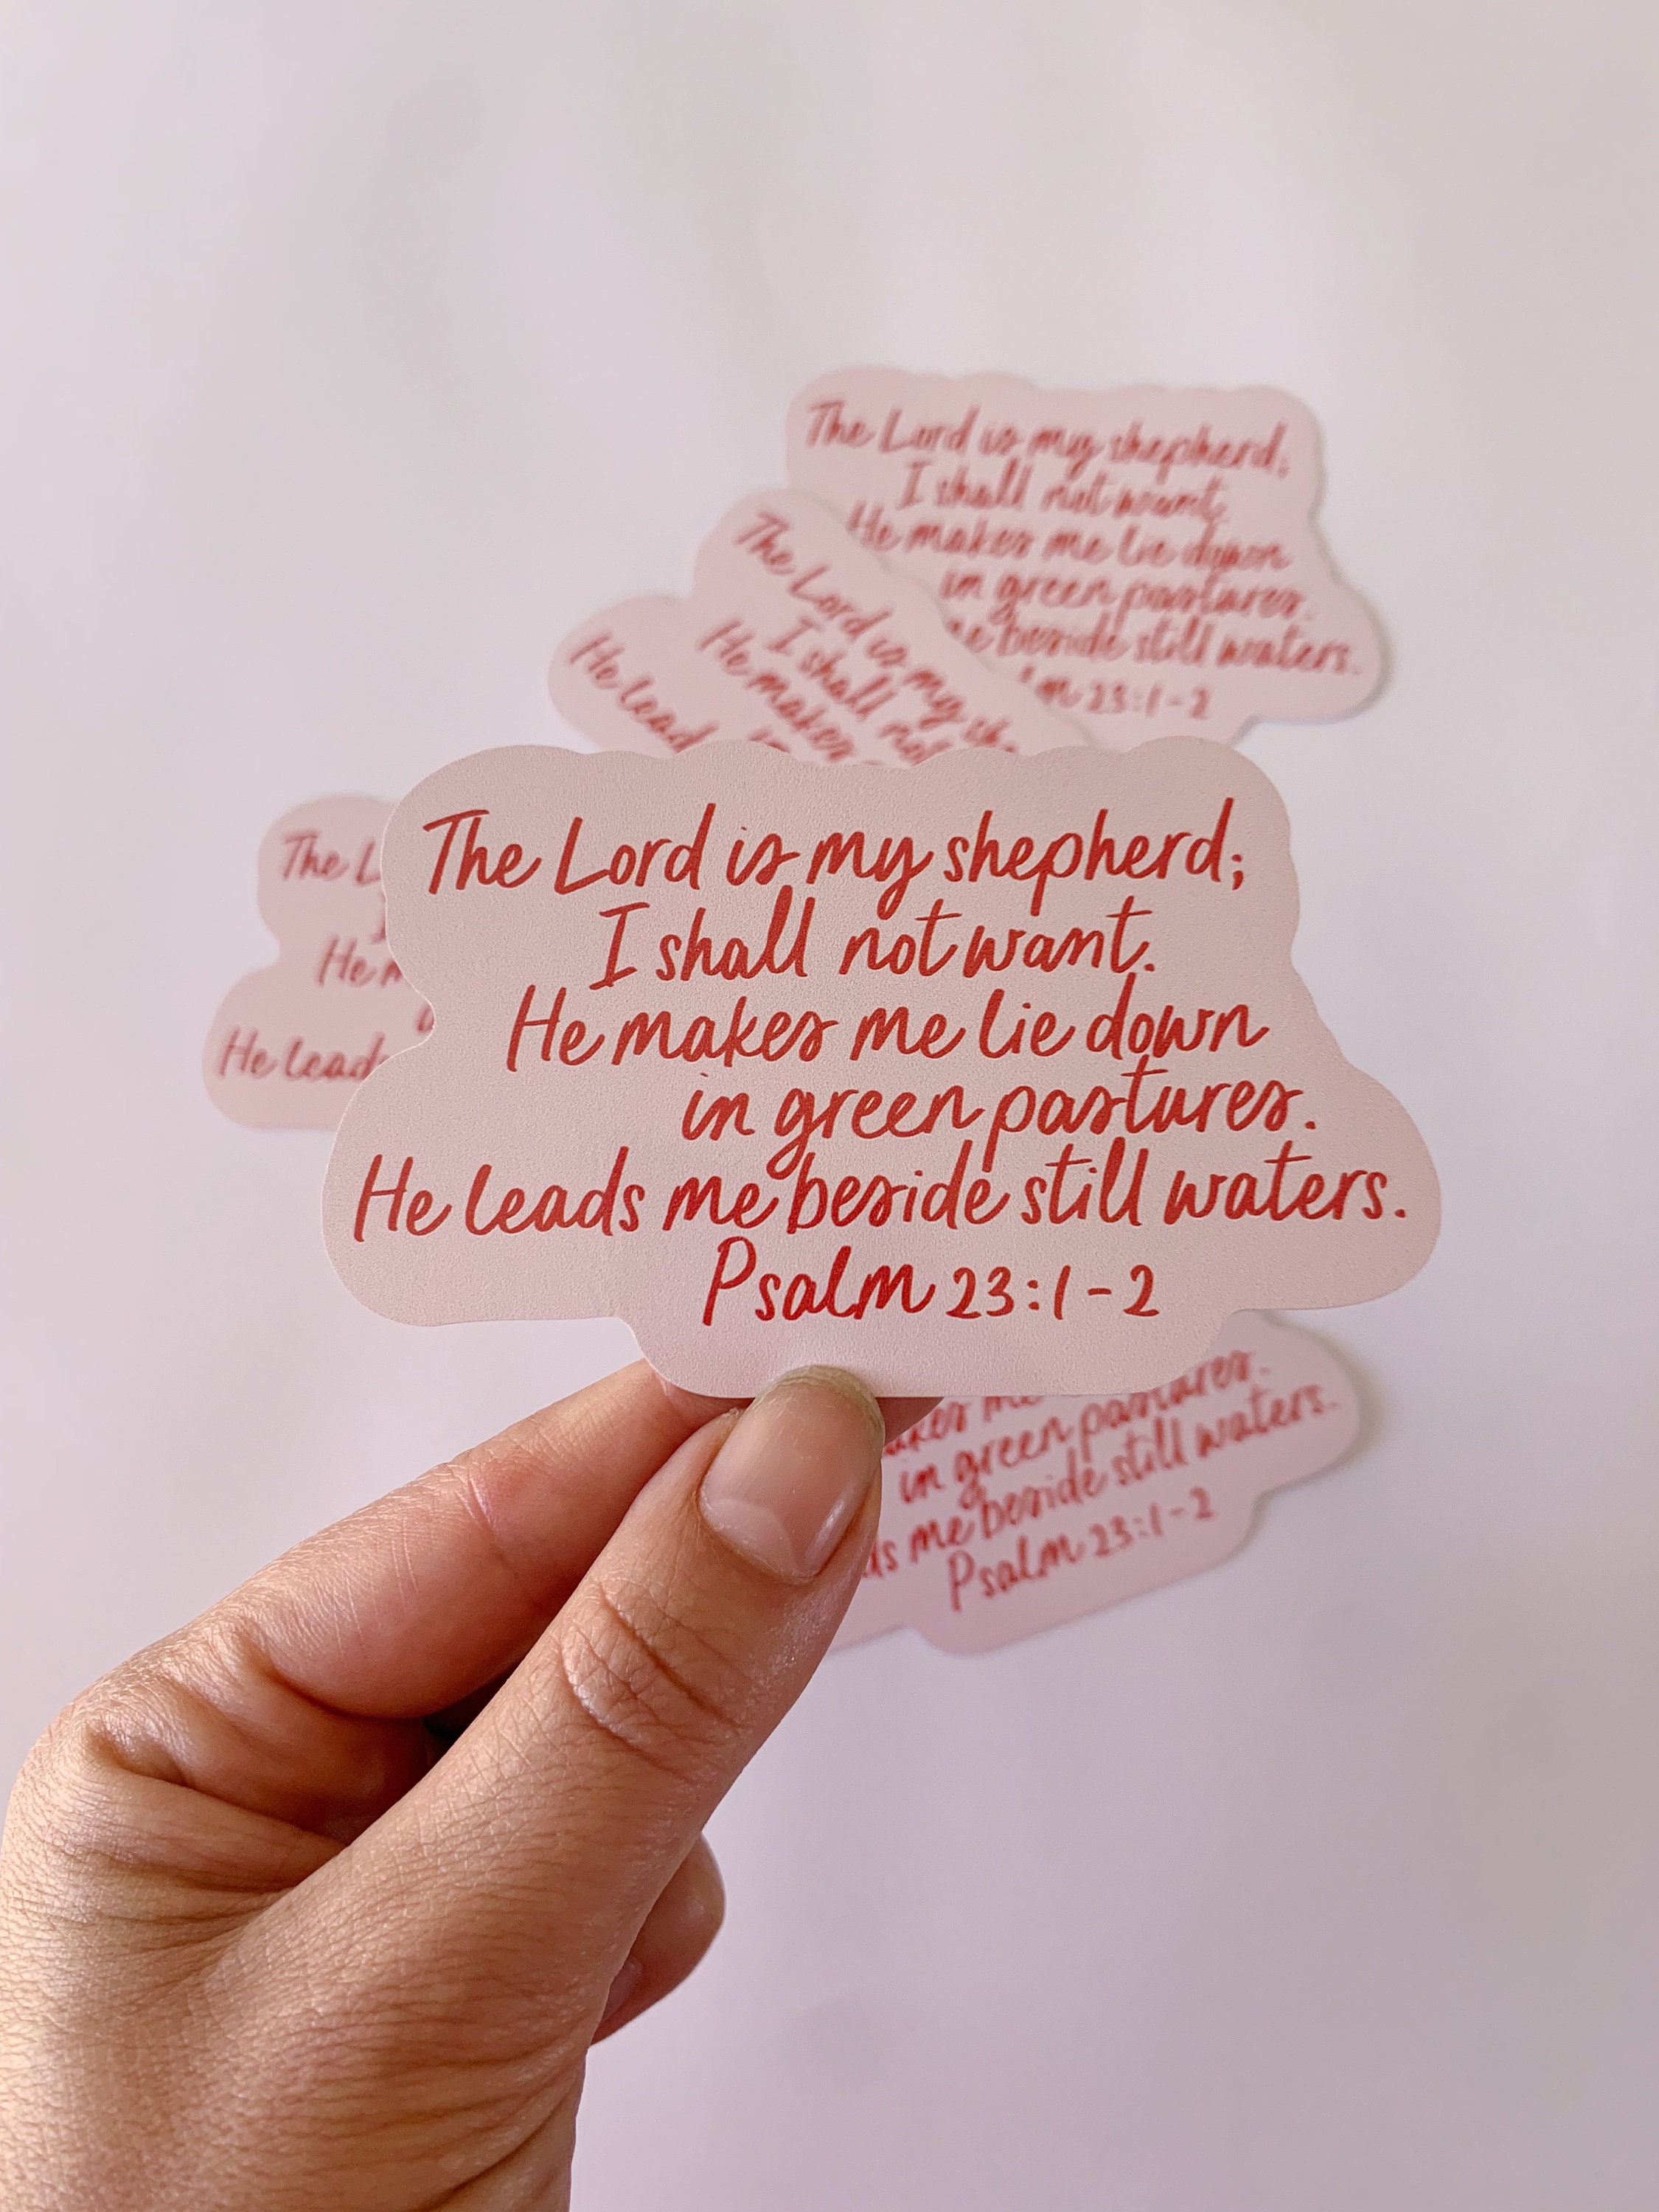 The Lord is my shepherd;
I shall not want.
He makes me lie down
in green pastures.
me beside still waters.
23:1-2
The Lord is my
I shall not
He makes
He lead
The
He
He lead
The Lord is my shepherd;
I shall not want.
He makes me lie down
in green pastures.
He leads me beside still waters.
Psalm 23:1-2
in green pastures.
me beside still waters.
Psalm 23:1-2